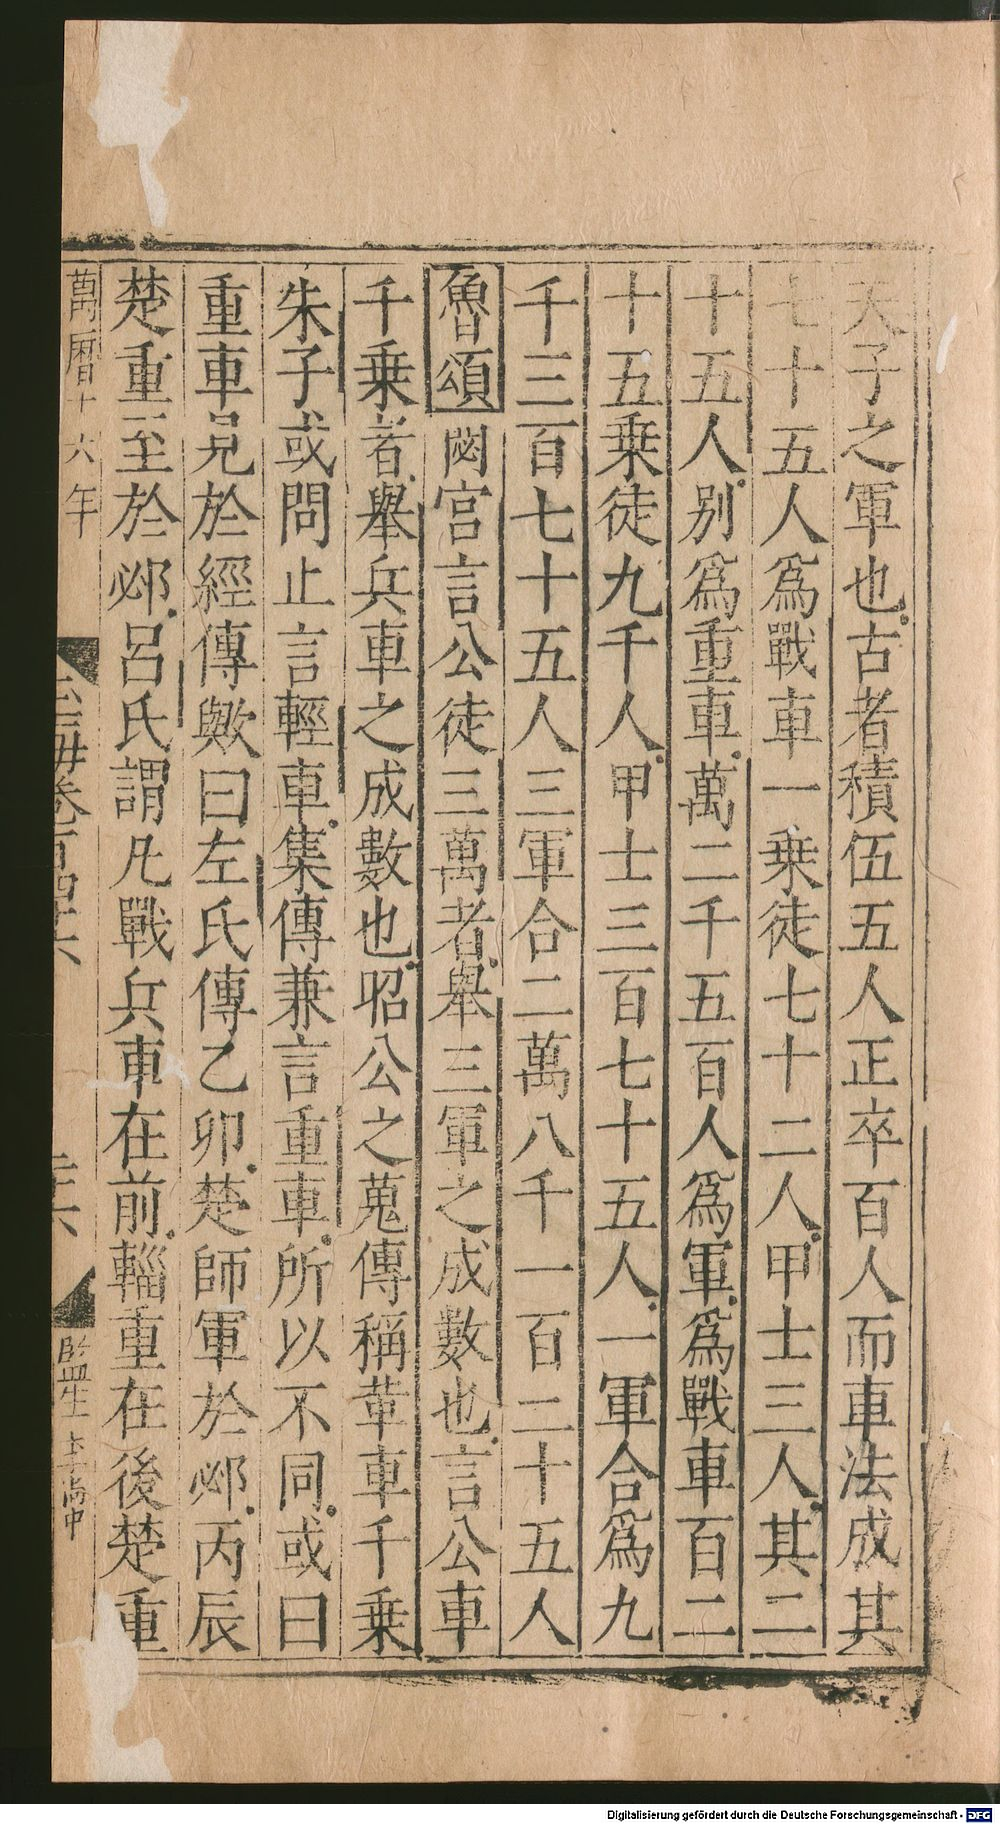 天子之軍也古者積伍五人正卒百人而車法成其
七十五人爲戰車一乗徒七十二人甲士三人其二
十五人别爲重車萬二千五百人爲軍爲戰車百二
十五乗徒九千人甲士三百七十五人一軍合爲九
千三百七十五人三軍合二萬八千一百二十五人
魯頌閟宮言公徒三萬者舉三軍之成數也言公車
千乗者舉兵車之成數也昭公之蒐傳稱革車千乗
朱子或問止言輕車集傳兼言重車所以不同或曰
重車見於經傳歟曰左氏傳乙卯楚師軍於邲丙辰
楚重至於邲呂氏謂凡戰兵車在前輜重在後楚重
萬曆十六年
玉海卷百四六
三六
監生
Digitalisierung gefördert durch die Deutsche Forschungsgemeinschaft - DFG